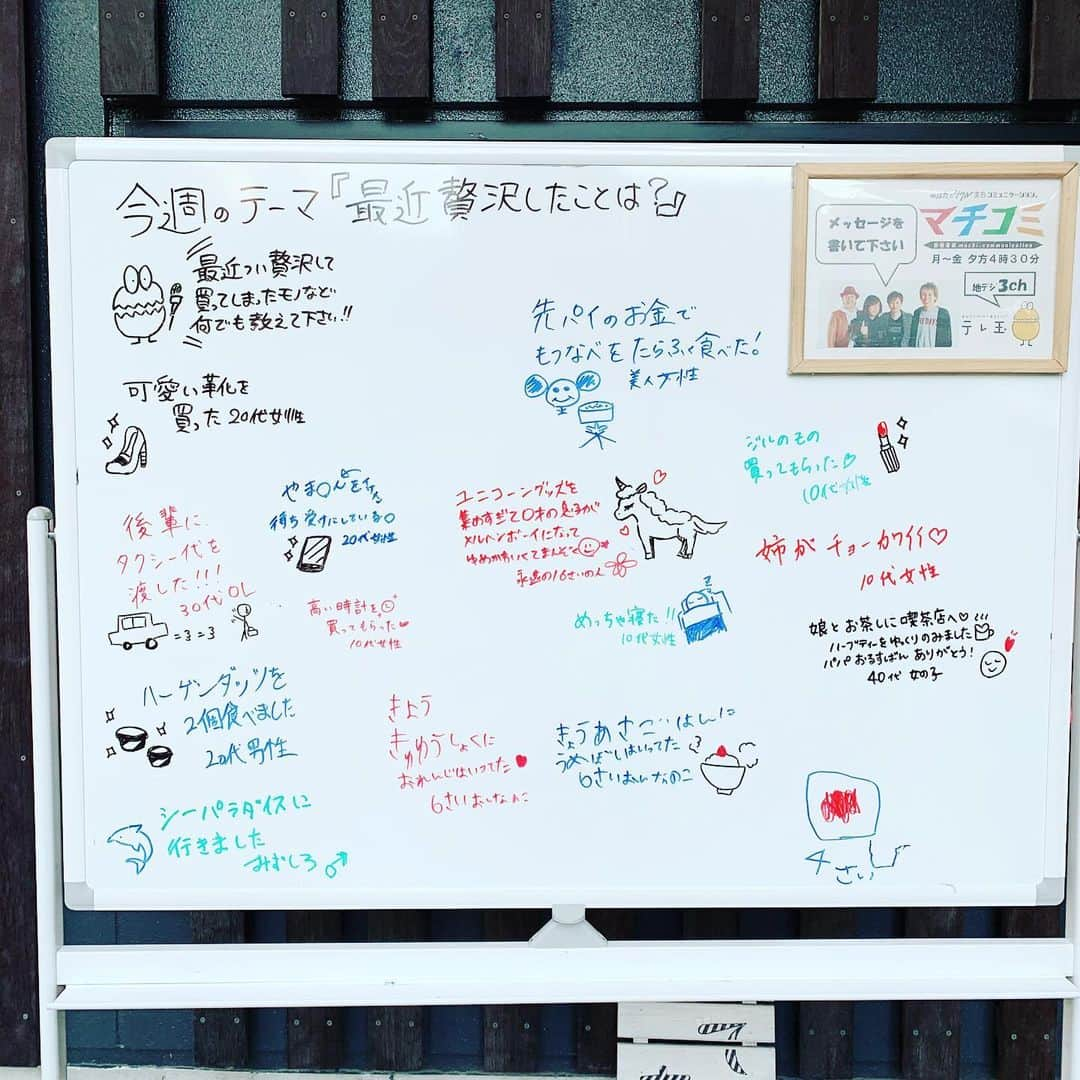 今週のテーマ『最近贅沢したことは?』
最近つい贅沢して
買ってしまったモノなど
何でも教えて下さい!!
メッセージを
書いて下さい
マチコミ
月〜金 夕方4時30分
地デジ3ch
テレ玉
先パイのお金で
もつなべをたらふく食べた!
美人女性
可愛い靴を
買った 20代女性
ジルのもの
買ってもらった♡
10代女性
待ち受けにしている
20代女性
ユニコーングッズを
集めすぎて0才の息子が
メルヘンボーイになって
ゆめかわいくてまんぞく
永遠の16さいのん
後輩に
タクシー代を
渡した!!!
30代OL
=3=3
姉がチョーカワイイ♡
10代女性
高い時計を
買ってもらった♥
10代女性
めっちゃ寝た!!
10代女性
z
娘とお茶しに喫茶店へ♡
ハーブティーをゆっくりのみました
パパおるすばんありがとう!
40代 女の子
ハーゲンダッツを
2個食べました
20代男性
きょう
きゅうしょくに
おれんじはいってた♥
6さいおんなのこ
きょうあさごはんに
うめぼしはいってた
6さいおんなのこ
シーパラダイスに
行きました
みずしろ♂
4さい